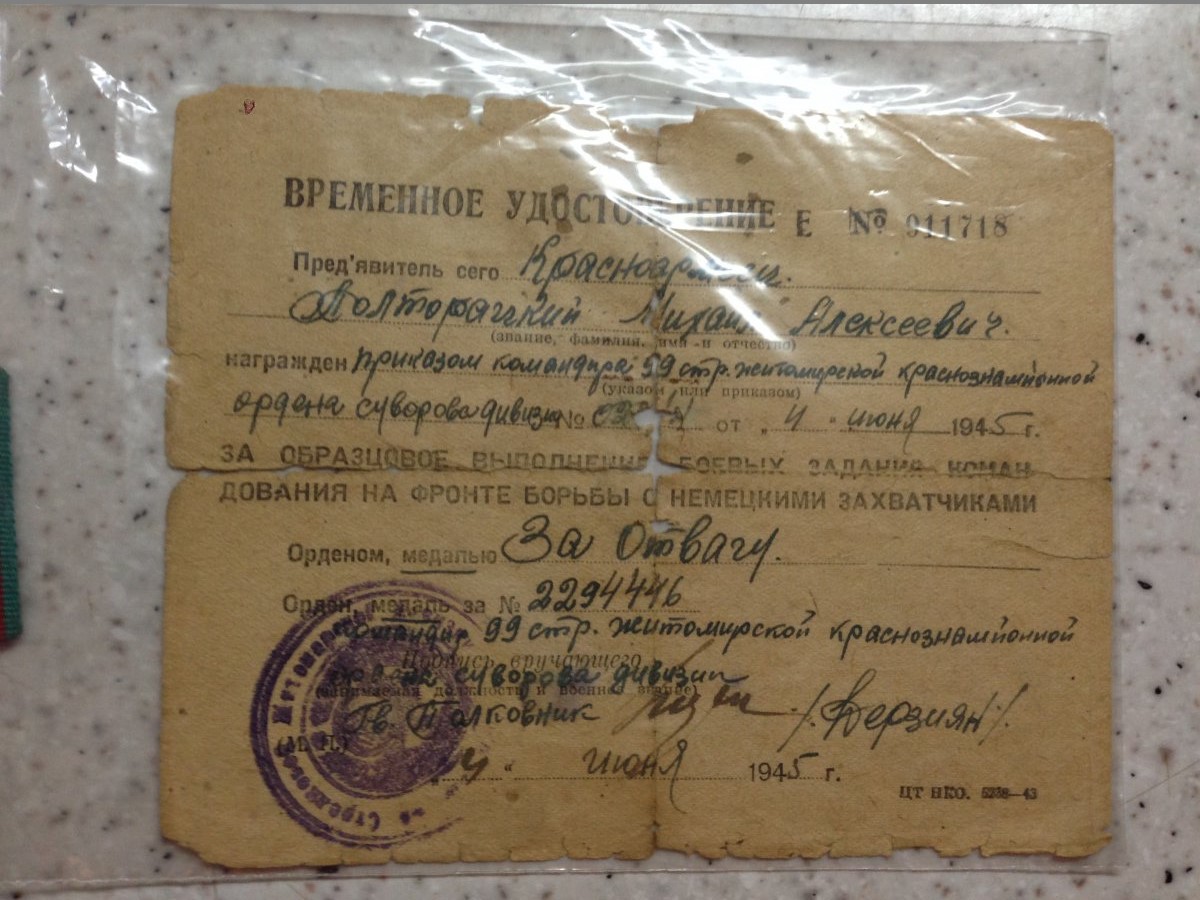 ВРЕМЕННОЕ УДОСТОВЕРЕНИЕ Е № 911718
Пред'явитель сего Красноармеец.
Полторацкий Михаил Алексеевич.
(звание, фамилия, имя и отчество)
награжден приказом командира 99 стр. житомирской краснознамённой
(указом или приказом)
ордена суворова дивизии № от „ 4 " июня 1945 г.
ЗА ОБРАЗЦОВОЕ ВЫПОЛНЕНИЕ БОЕВЫХ ЗАДАНИЙ КОМАН
ДОВАНИЯ НА ФРОНТЕ БОРЬБЫ С НЕМЕЦКИМИ ЗАХВАТЧИКАМИ
Орденом, медалью За Отвагу.
Орден, медаль за № 2294446
командир 99 стр. житомирской краснознамённой
Подпись вручающего
ордена суворова дивизии
(занимаемая должность и военное звание)
Гв. Полковник /Берзиян/.
(М. П.)
„ 4 " июня 1945 г.
ЦТ НКО. 5238—43